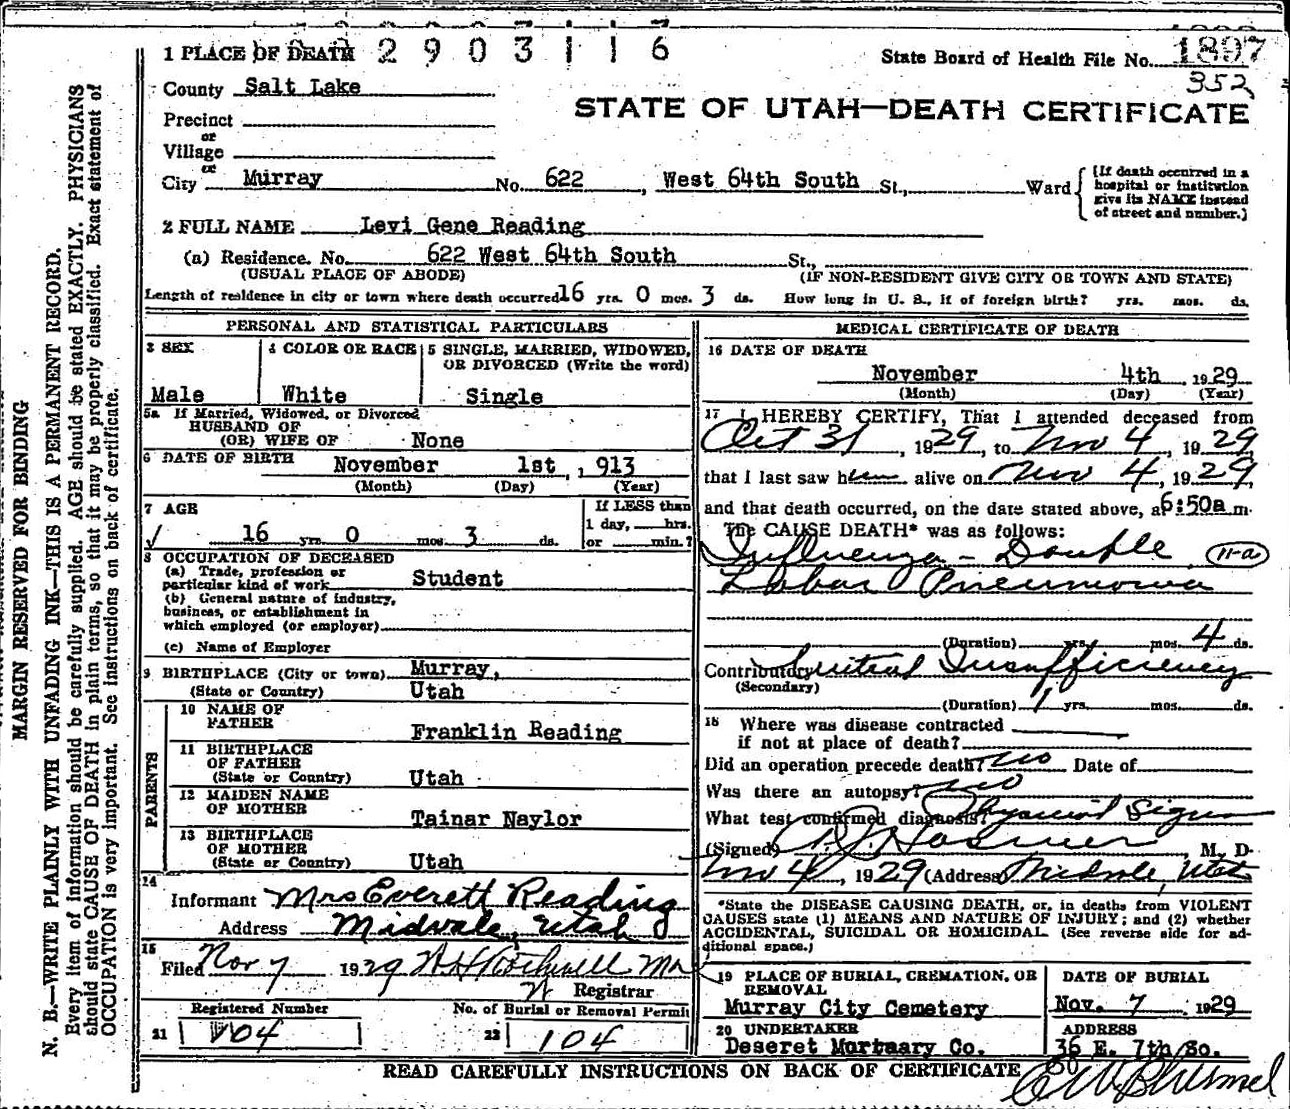 2903116
1 PLACE OF DEATH
State Board of Health File No. 1897
352
County Salt Lake
STATE OF UTAH—DEATH CERTIFICATE
Precinct
or
Village
or
City Murray No. 622, West 64th South St., Ward
(If death occurred in a hospital or institution give its NAME instead of street and number.)
2 FULL NAME Levi Gene Reading
(a) Residence. No. 622 West 64th South St.,
(USUAL PLACE OF ABODE) (IF NON-RESIDENT GIVE CITY OR TOWN AND STATE)
Length of residence in city or town where death occurred 16 yrs. 0 mos. 3 ds. How long in U. S., if of foreign birth? yrs. mos. ds.
PERSONAL AND STATISTICAL PARTICULARS
3 SEX
Male
4 COLOR OR RACE
White
5 SINGLE, MARRIED, WIDOWED,
OR DIVORCED (Write the word)
Single
5a If Married, Widowed, or Divorced
HUSBAND OF
(OR) WIFE OF None
6 DATE OF BIRTH November 1st, 1913
(Month) (Day) (Year)
7 AGE
16 yrs. 0 mos. 3 ds.
If LESS than
1 day, hrs.
or min.?
8 OCCUPATION OF DECEASED
(a) Trade, profession or
particular kind of work Student
(b) General nature of industry,
business, or establishment in
which employed (or employer)
(c) Name of Employer
9 BIRTHPLACE (City or town) Murray,
(State or Country) Utah
PARENTS
10 NAME OF
FATHER Franklin Reading
11 BIRTHPLACE
OF FATHER
(State or Country) Utah
12 MAIDEN NAME
OF MOTHER Tainar Naylor
13 BIRTHPLACE
OF MOTHER
(State or Country) Utah
14
Informant Mrs Everett Reading
Address Midvale, Utah
15
Filed Nov 7 1929 Rockwell MD
Registrar
Registered Number
21 104
No. of Burial or Removal Permit
22 104
MEDICAL CERTIFICATE OF DEATH
16 DATE OF DEATH
November 4th, 1929
(Month) (Day) (Year)
17 I HEREBY CERTIFY, That I attended deceased from
Oct 31, 1929, to Nov 4, 1929
that I last saw him alive on Nov 4, 1929,
and that death occurred, on the date stated above, at 6:50a m.
The CAUSE DEATH* was as follows:
Influenza - Double 11-a
Lobar Pneumonia
(Duration) yrs. mos. 4 ds.
Contributory Mitral Insufficiency
(Secondary)
(Duration) 1 yrs. mos. ds.
18 Where was disease contracted
if not at place of death?
Did an operation precede death? no Date of
Was there an autopsy? no
What test confirmed diagnosis? Physical Signs
(Signed) M. D.
Nov 4, 1929 (Address) Midvale, Utah
*State the DISEASE CAUSING DEATH, or, in deaths from VIOLENT
CAUSES state (1) MEANS AND NATURE OF INJURY; and (2) whether
ACCIDENTAL, SUICIDAL OR HOMICIDAL. (See reverse side for ad-
ditional space.)
19 PLACE OF BURIAL, CREMATION, OR
REMOVAL
Murray City Cemetery
DATE OF BURIAL
Nov. 7 1929
20 UNDERTAKER
Deseret Mortuary Co.
ADDRESS
36 E. 7th So.
READ CAREFULLY INSTRUCTIONS ON BACK OF CERTIFICATE
MARGIN RESERVED FOR BINDING
N. B.—WRITE PLAINLY WITH UNFADING INK—THIS IS A PERMANENT RECORD.
Every item of information should be carefully supplied. AGE should be stated EXACTLY. PHYSICIANS
should state CAUSE OF DEATH in plain terms, so that it may be properly classified. Exact statement of
OCCUPATION is very important. See instructions on back of certificate.